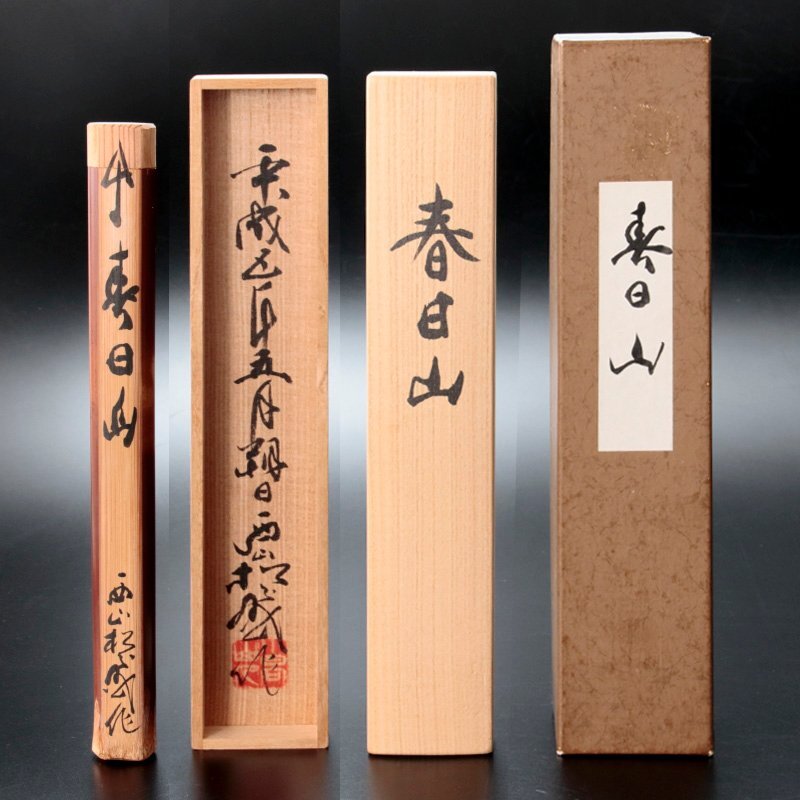 春日山
西山松之助作
平成五年五月朔日 西山松之助作
春日山
春日山